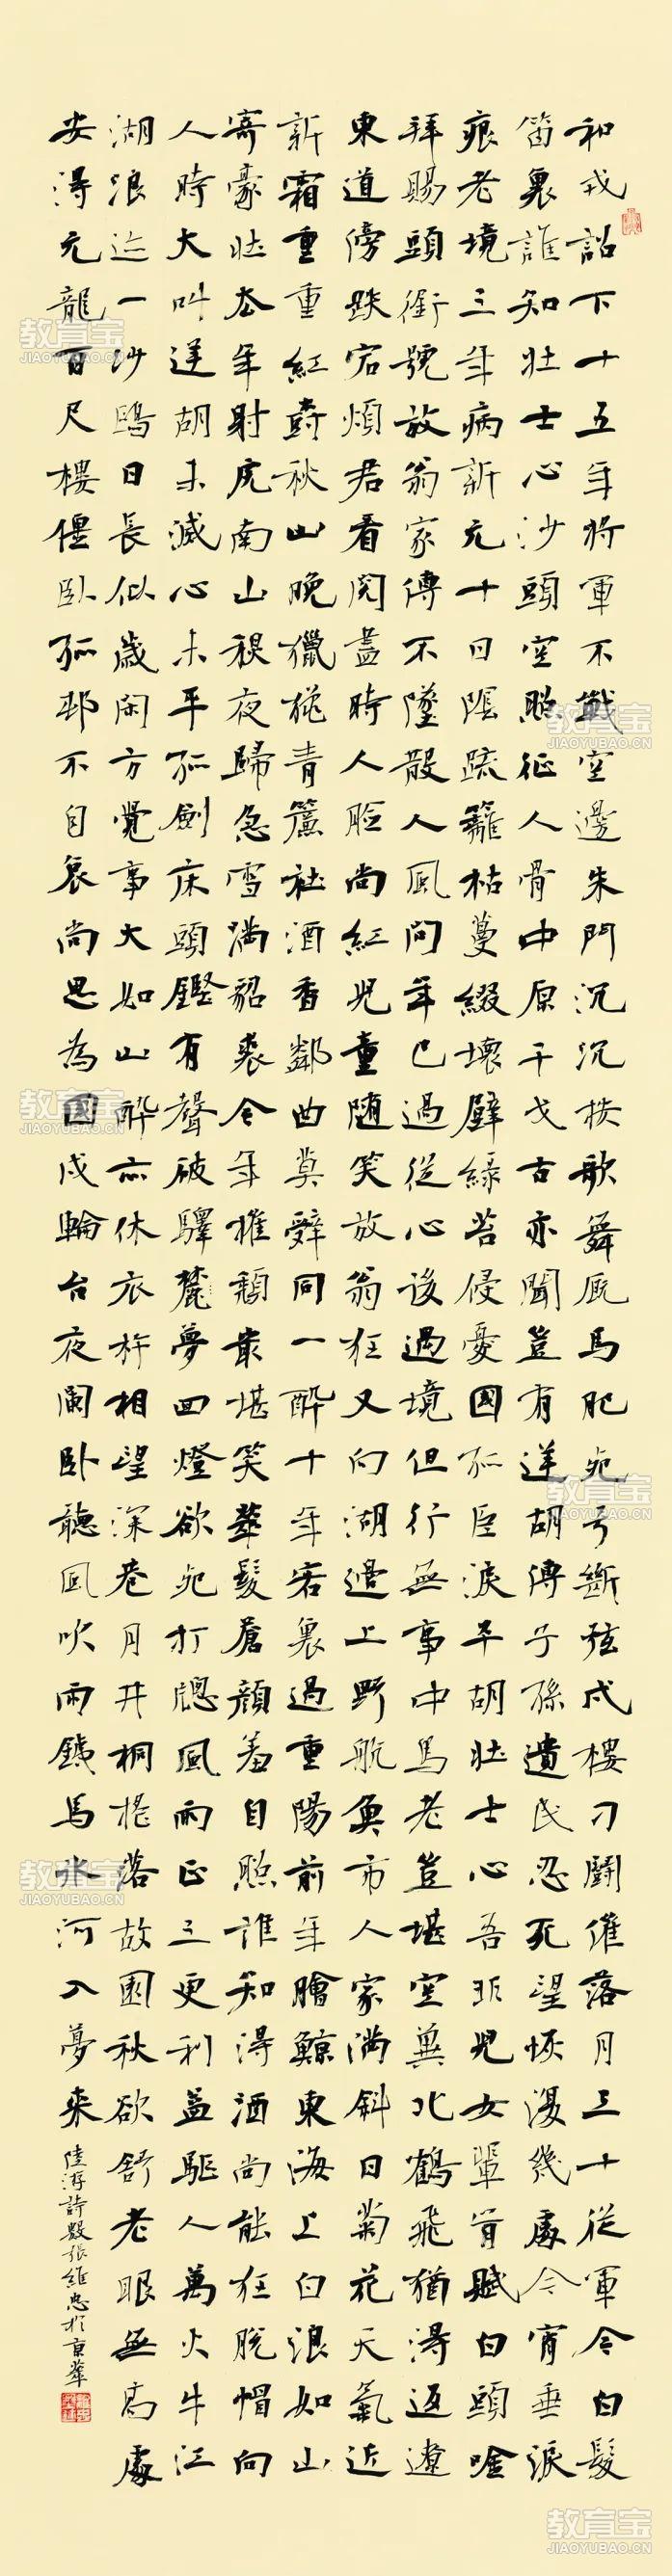 和戎詔下十五年将軍不戰空邊朱門沉沉按歌舞厩馬肥死弓斷弦戍樓刁鬭催落月三十從軍今白髮
笛裏誰知壯士心沙頭空照征人骨中原干戈古亦聞豈有逆胡傳子孫遺民忍死望恢復幾處今宵垂淚
痕老境三年病新元十日陰疏籬枯蔓綴壞壁綠苔侵憂國孤臣淚平胡壯士心吾非兒女輩肯賦白頭唫
拜賜頭銜號放翁家傳不墜散人風問年已過從心後過境但行無事中馬老豈堪空冀北鶴飛猶得返遼
東道傍跌宕煩君看閱盡時人臉尚紅兒童随笑放翁狂又向湖邊上野航魚市人家滿斜日菊花天氣近
新霜重重紅樹秋山晚獵獵青簾社酒香鄰曲莫辭同一醉十年客裏過重陽前年膾鯨東海上白浪如山
寄豪壯去年射虎南山秋夜歸急雪滿貂裘今年摧頹最堪笑華髮蒼顏羞自照誰知得酒尚能狂脫帽向
人時大叫逆胡未滅心未平孤劍床頭鏗有聲破驛夢回燈欲死打牕風雨正三更利益驅人萬火牛江
湖浪迹一沙鷗日長似歲閑方覺事大如山醉亦休衣杵相望深巷月井桐搖落故園秋欲舒老眼無高處
安得元龍百尺樓僵臥孤邨不自哀尚思為國戍輪台夜闌臥聽風吹雨鐵馬冰河入夢來
陸游詩數張維忠於京華
教育宝
JIAOYUBAO.CN
教育宝
JIAOYUBAO.CN
教育宝
JIAOYUBAO.CN
教育宝
JIAOYUBAO.CN
教育宝
JIAOYUBAO.CN
教育宝
JIAOYUBAO.CN